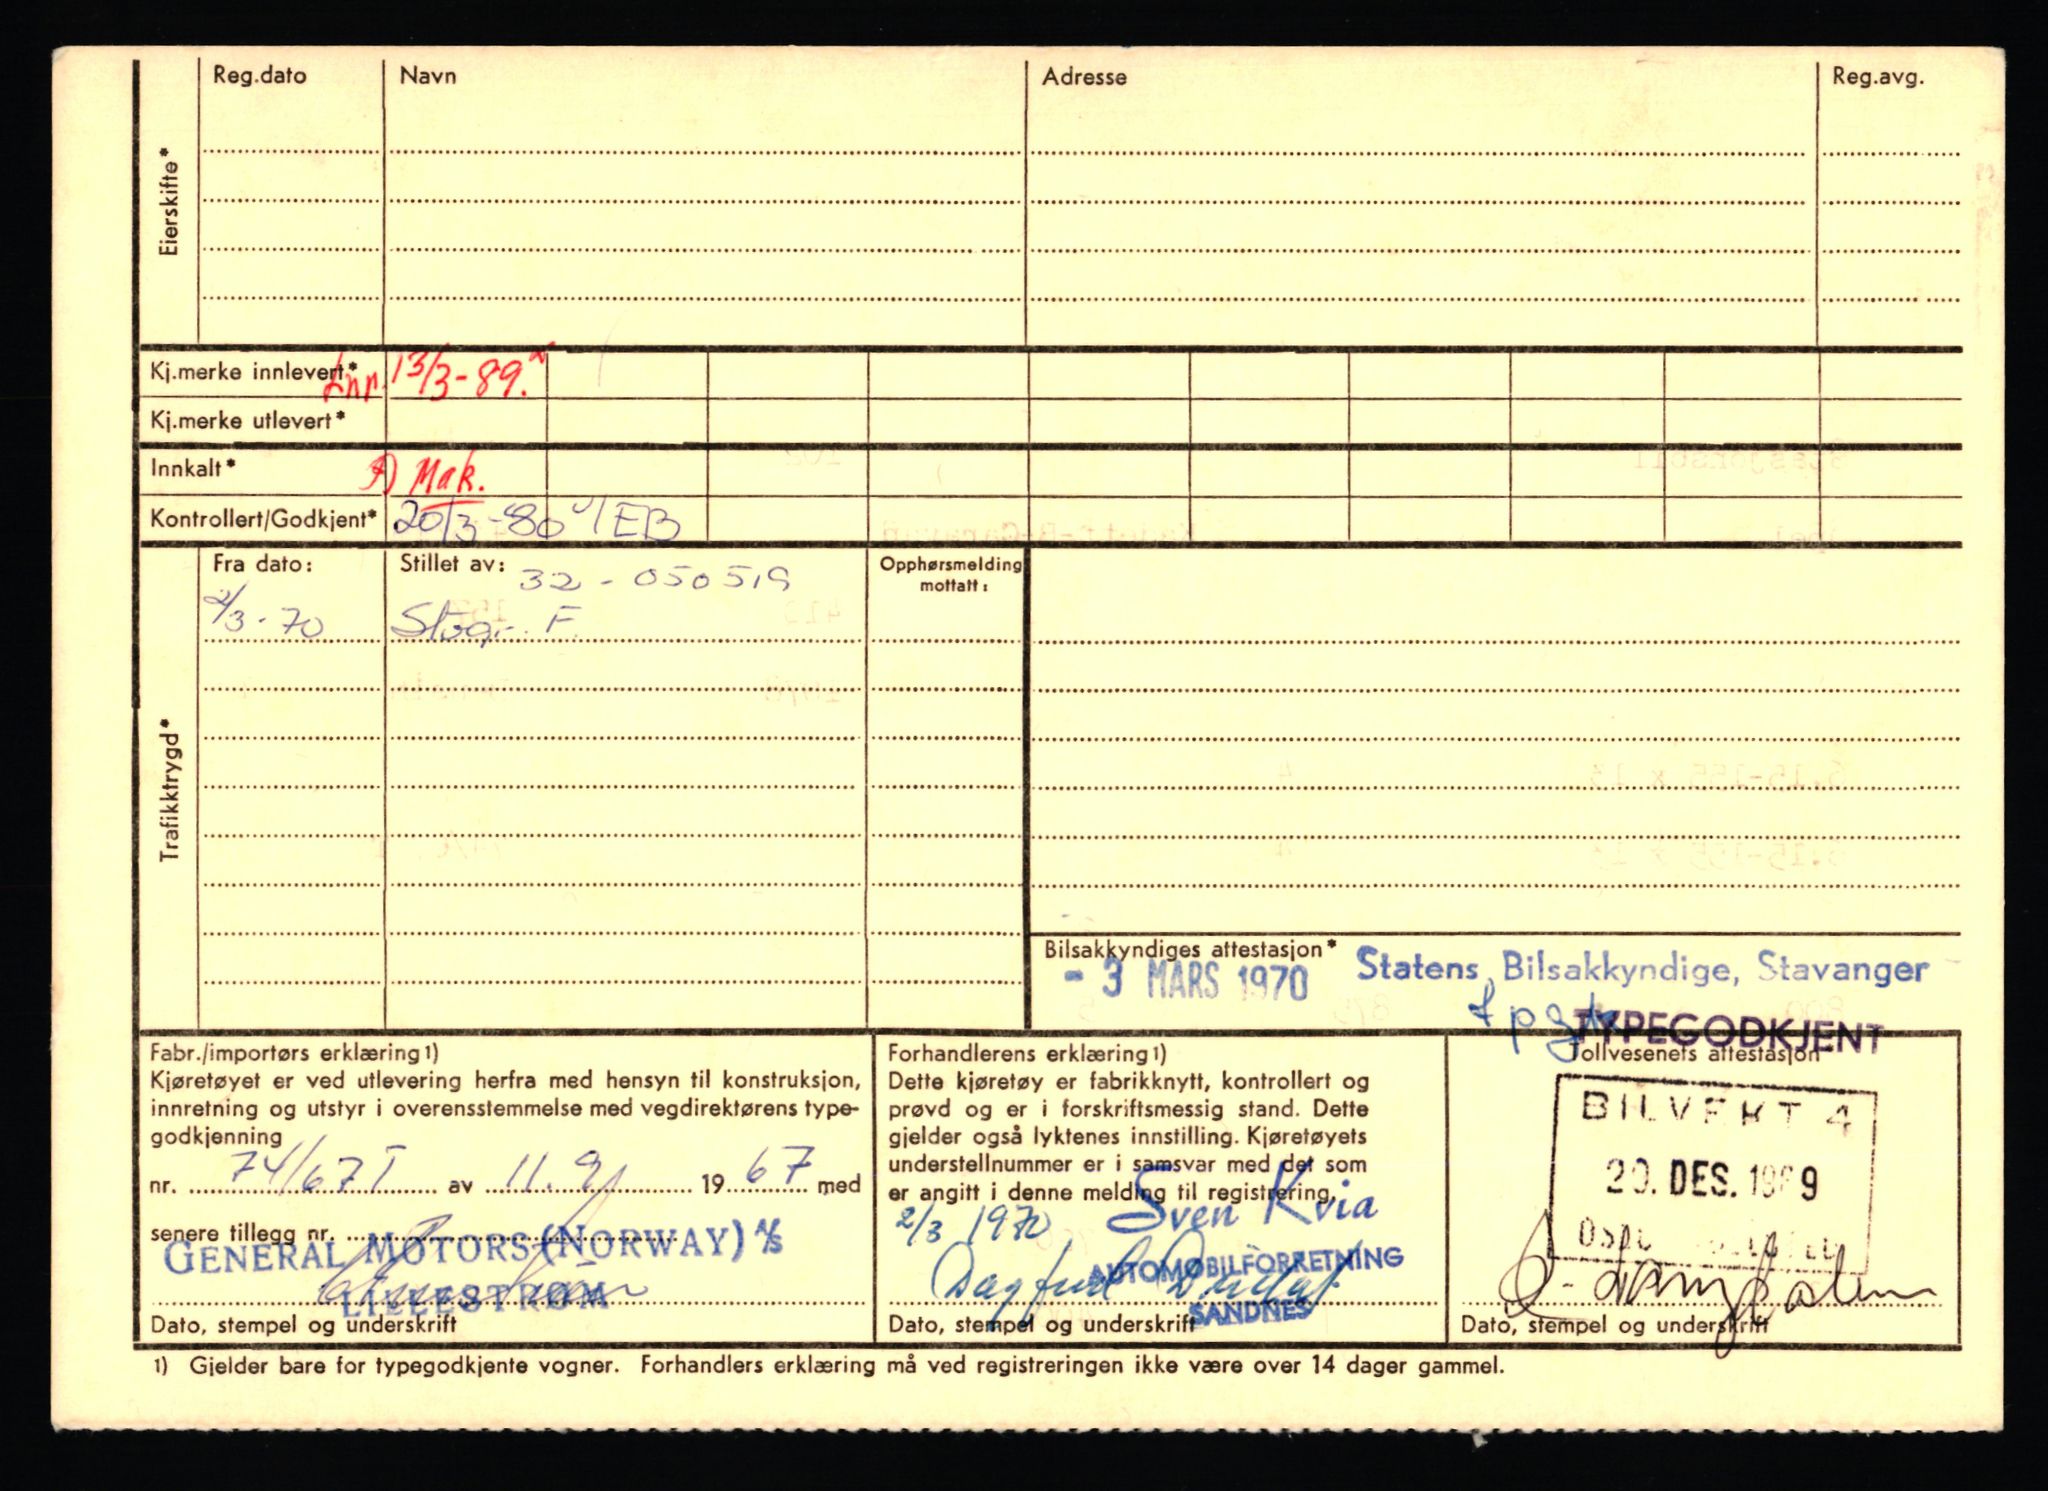 Eierskifte*
Reg.dato
Navn
Adresse
Reg.avg.
Kj.merke innlevert*
13/3-89.
Kj.merke utlevert*
Innkalt*
Mak.
Kontrollert/Godkjent*
20/3-80 EB
Trafikktrygd*
Fra dato:
Stillet av: 32-050519
Opphørsmelding
mottatt:
2/3-70
F.
Bilsakkyndiges attestasjon*
- 3 MARS 1970
Statens Bilsakkyndige, Stavanger
TYPEGODKJENT
Fabr./importørs erklæring1)
Kjøretøyet er ved utlevering herfra med hensyn til konstruksjon,
innretning og utstyr i overensstemmelse med vegdirektørens type-
godkjenning
nr. 74/67T av 11.9 1967 med
senere tillegg nr.
GENERAL MOTORS (NORWAY) A/S
LILLESTRØM
Dato, stempel og underskrift
Forhandlerens erklæring1)
Dette kjøretøy er fabrikknytt, kontrollert og
prøvd og er i forskriftsmessig stand. Dette
gjelder også lyktenes innstilling. Kjøretøyets
understellnummer er i samsvar med det som
er angitt i denne melding til registrering.
2/3 1970 Sven Kvia
AUTOMOBILFORRETNING
SANDNES
Dato, stempel og underskrift
Tollvesenets attestasjon
BILVEKT 4
29. DES. 1969
Dato, stempel og underskrift
1) Gjelder bare for typegodkjente vogner. Forhandlers erklæring må ved registreringen ikke være over 14 dager gammel.